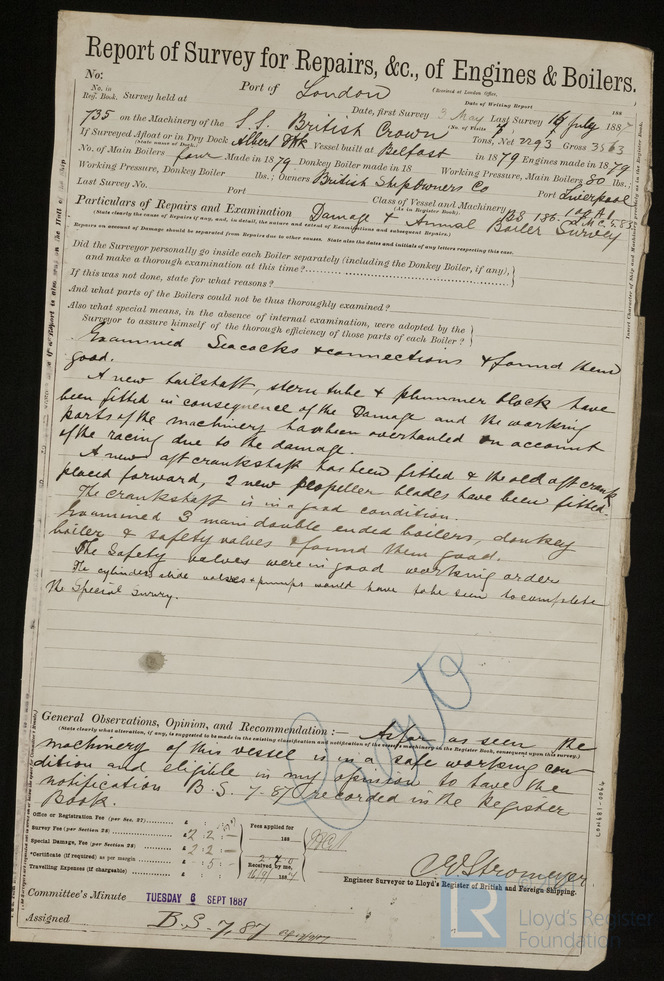 Report of Survey for Repairs, &c., of Engines & Boilers.
No:
(Received at London Office,
No. in Reg. Book. Survey held at Port of London
Date of Writing Report 188
Date, first Survey 3 May Last Survey 16 July 1887
735 on the Machinery of the S.S. British Crown (No. of Visits 7)
Tons, Net 2293 Gross 3563
If Surveyed Afloat or in Dry Dock Albert Dk Vessel built at Belfast in 1879 Engines made in 1879
(State name of Dock.)
No. of Main Boilers four Made in 1879 Donkey Boiler made in 18 Working Pressure, Main Boilers 80 lbs.;
Working Pressure, Donkey Boiler lbs.; Owners British Shipowners Co Port Liverpool
Last Survey No. Port Class of Vessel and Machinery
(As in Register Book).
Particulars of Repairs and Examination Damage & Annual Boiler Survey
(State clearly the cause of Repairs (if any), and, in detail, the nature and extent of Examinations and subsequent Repairs.)
Repairs on account of Damage should be separated from Repairs due to other causes. State also the dates and initials of any letters respecting this case.
Did the Surveyor personally go inside each Boiler separately (including the Donkey Boiler, if any),
and make a thorough examination at this time?
If this was not done, state for what reasons?
And what parts of the Boilers could not be thus thoroughly examined?
Also what special means, in the absence of internal examination, were adopted by the
Surveyor to assure himself of the thorough efficiency of those parts of each Boiler?
Examined Seacocks & connections & found them
good.
A new tailshaft, stern tube & plummer block have
been fitted in consequence of the Damage and the working
parts of the machinery has been overhauled on account
of the racing due to the damage.
A new aft crankshaft has been fitted & the old aft crank
placed forward, 2 new propeller blades have been fitted.
The crankshaft is in a good condition.
Examined 3 main double ended boilers, donkey
boiler & safety valves & found them good.
The Safety valves were in good working order
The cylinders slide valves & pumps would have to be seen to complete
the Special Survey.
General Observations, Opinion, and Recommendation :— As far as seen the
(State clearly what alteration, if any, is suggested to be made in the existing classification and notification of the vessel's machinery in the Register Book, consequent upon this survey.)
machinery of this vessel is in a safe working con-
dition and eligible in my opinion to have the
notification B.S. 7-87 recorded in the Register
Book.
Office or Registration Fee (per Sec. 27)
Survey Fee (per Section 28) £ 2 : 2 :
Special Damage, Fee (per Section 28) £ 2 : 2 : –
*Certificate (if required) as per margin £ : 5 : –
Travelling Expenses (if chargeable) £ : :
Fees applied for
188
Received by me,
188
Engineer Surveyor to Lloyd's Register of British and Foreign Shipping.
Committee's Minute TUESDAY 6 SEPT 1887
Assigned B.S. 7,87
LR Lloyd's Register Foundation